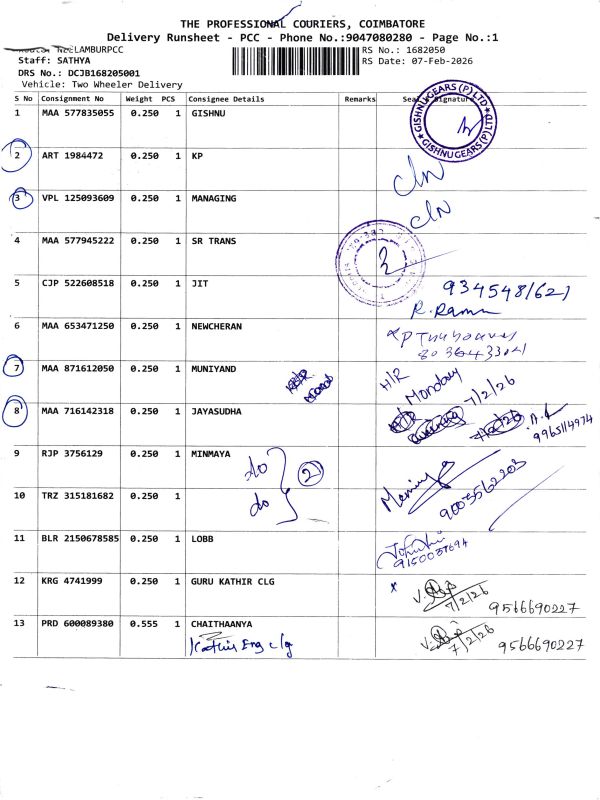 THE PROFESSIONAL COURIERS, COIMBATORE
Delivery Runsheet - PCC - Phone No.:9047080280 - Page No.:1
NEELAMBURPCC
RS No.: 1682050
Staff: SATHYA
RS Date: 07-Feb-2026
DRS No.: DCJB168205001
Vehicle: Two Wheeler Delivery
S No Consignment No Weight PCS Consignee Details Remarks Seal Signature
1 MAA 577835055 0.250 1 GISHNU
GISHNU GEARS (P) LTD
GISHNU GEARS (P) LTD
2 ART 1984472 0.250 1 KP
3 VPL 125093609 0.250 1 MANAGING
4 MAA 577945222 0.250 1 SR TRANS
5 CJP 522608518 0.250 1 JIT
R. Raman
6 MAA 653471250 0.250 1 NEWCHERAN
7 MAA 871612050 0.250 1 MUNIYAND H/R
Monday
7/2/26
8 MAA 716142318 0.250 1 JAYASUDHA
9965114974
9 RJP 3756129 0.250 1 MINMAYA do
2
9003562203
10 TRZ 315181682 0.250 1 do
11 BLR 2150678585 0.250 1 LOBB
9150037694
12 KRG 4741999 0.250 1 GURU KATHIR CLG x
7/2/26 9566690227
13 PRD 600089380 0.555 1 CHAITHAANYA
Kathir Eng clg
7/2/26 9566690227